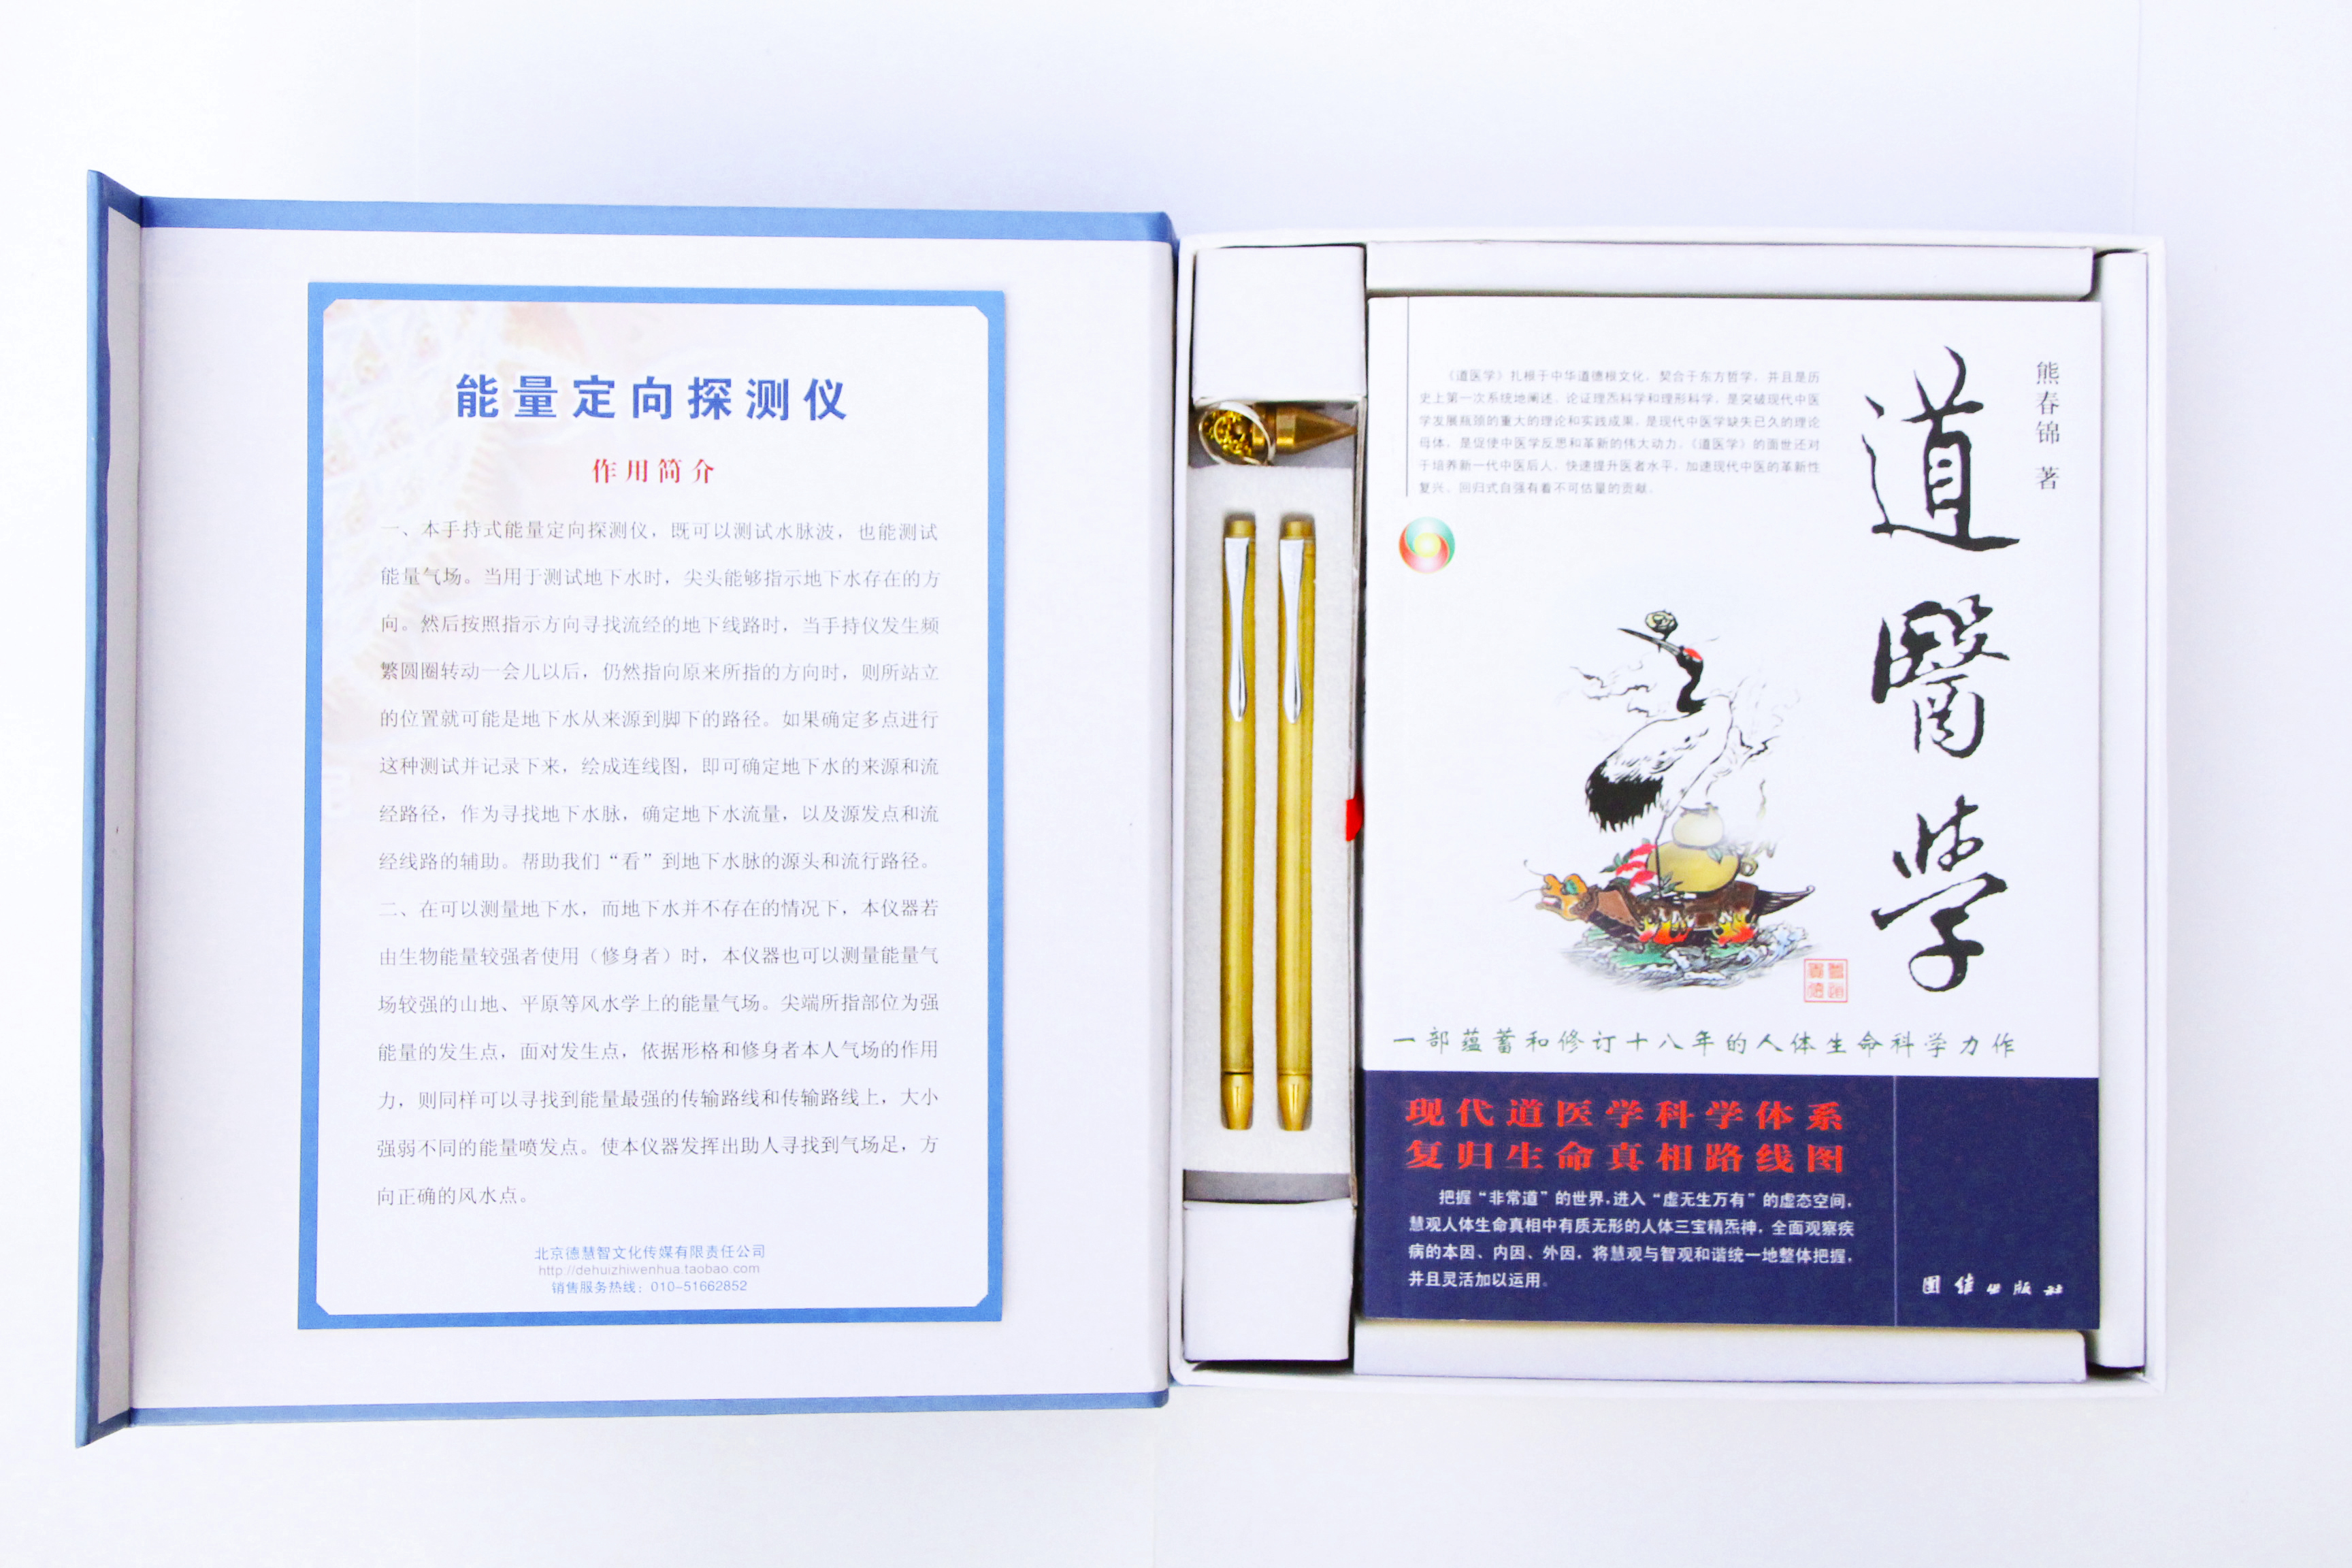 能量定向探测仪
作用简介
一、本手持式能量定向探测仪，既可以测试水脉波，也能测试
能量气场。当用于测试地下水时，尖头能够指示地下水存在的方
向。然后按照指示方向寻找流经的地下线路时，当手持仪发生频
繁圆圈转动一会儿以后，仍然指向原来所指的方向时，则所站立
的位置就可能是地下水从来源到脚下的路径。如果确定多点进行
这种测试并记录下来，绘成连线图，即可确定地下水的来源和流
经路径，作为寻找地下水脉，确定地下水流量，以及源发点和流
经线路的辅助。帮助我们“看”到地下水脉的源头和流行路径。
二、在可以测量地下水，而地下水并不存在的情况下，本仪器若
由生物能量较强者使用（修身者）时，本仪器也可以测量能量气
场较强的山地、平原等风水学上的能量气场。尖端所指部位为强
能量的发生点，面对发生点，依据形格和修身者本人气场的作用
力，则同样可以寻找到能量最强的传输路线和传输路线上，大小
强弱不同的能量喷发点。使本仪器发挥出助人寻找到气场足，方
向正确的风水点。
北京德慧智文化传媒有限责任公司
http://dehuizhiwenhua.taobao.com
销售服务热线：010-51662852
熊春锦 著
道醫学
《道医学》扎根于中华道德根文化，契合于东方哲学，并且是历
史上第一次系统地阐述、论证理炁科学和理形科学，是突破现代中医
学发展瓶颈的重大的理论和实践成果，是现代中医学缺失已久的理论
母体，是促使中医学反思和革新的伟大动力，《道医学》的面世还对
于培养新一代中医后人，快速提升医者水平，加速现代中医的革新性
复兴、回归式自强有着不可估量的贡献。
一部蕴蓄和修订十八年的人体生命科学力作
现代道医学科学体系
复归生命真相路线图
把握“非常道”的世界，进入“虚无生万有”的虚态空间，
慧观人体生命真相中有质无形的人体三宝精炁神，全面观察疾
病的本因、内因、外因，将慧观与智观和谐统一地整体把握，
并且灵活加以运用。
团结出版社